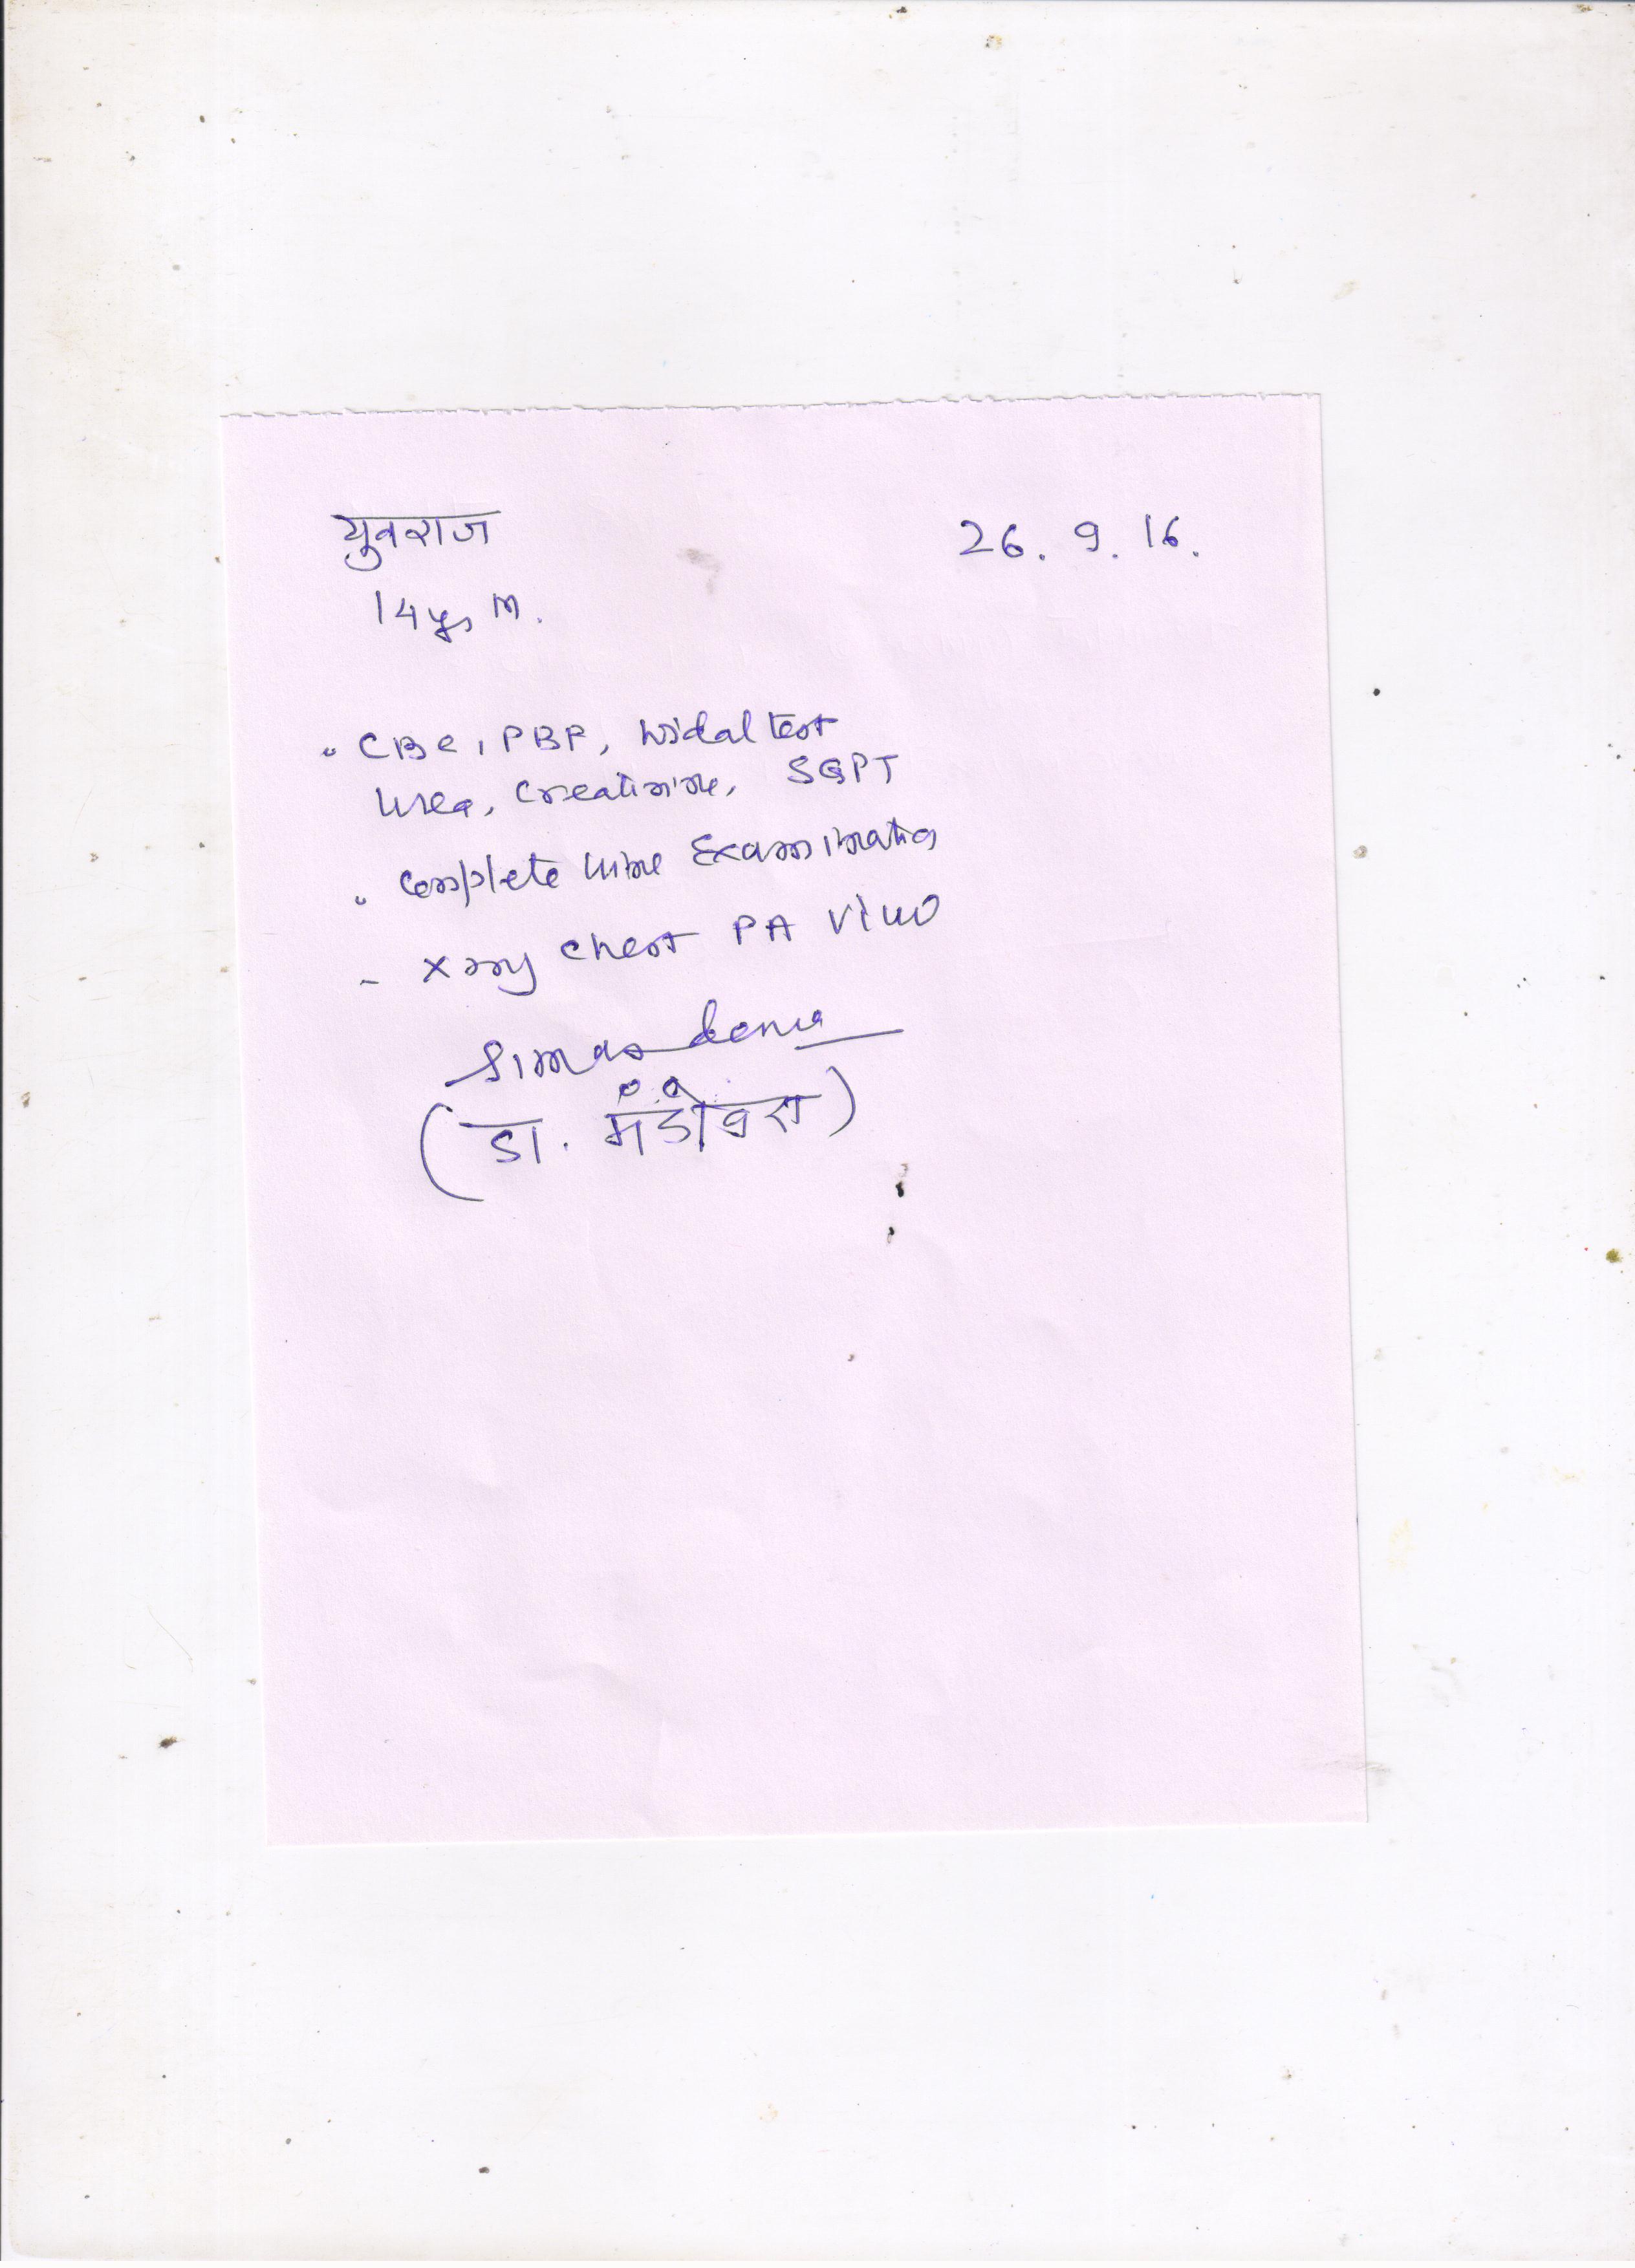 युवराज 26. 9. 16.
14 yrs M.
CBC, PBF, Widal test
Urea, Creatinine, SGPT
Complete Urine Examination
X ray Chest PA View
(डा. मंडोवरा)